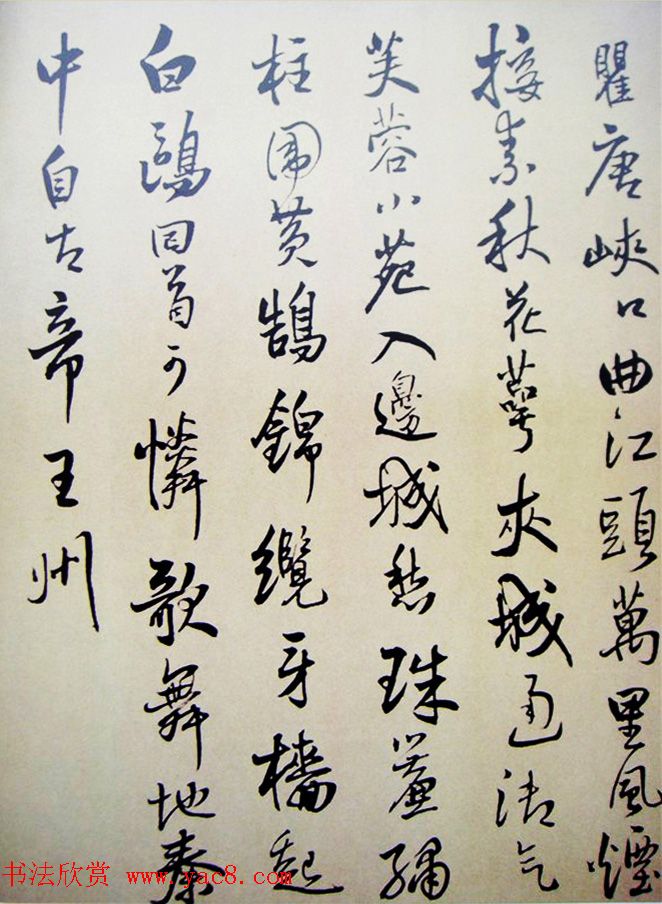 瞿唐峽口曲江頭萬里風煙
接素秋花萼夾城通御气
芙蓉小苑入邊城愁珠簾繡
柱圍黃鵠錦纜牙檣起
白鷗回首可憐歌舞地秦
中自古帝王州
书法欣赏 www.yac8.com